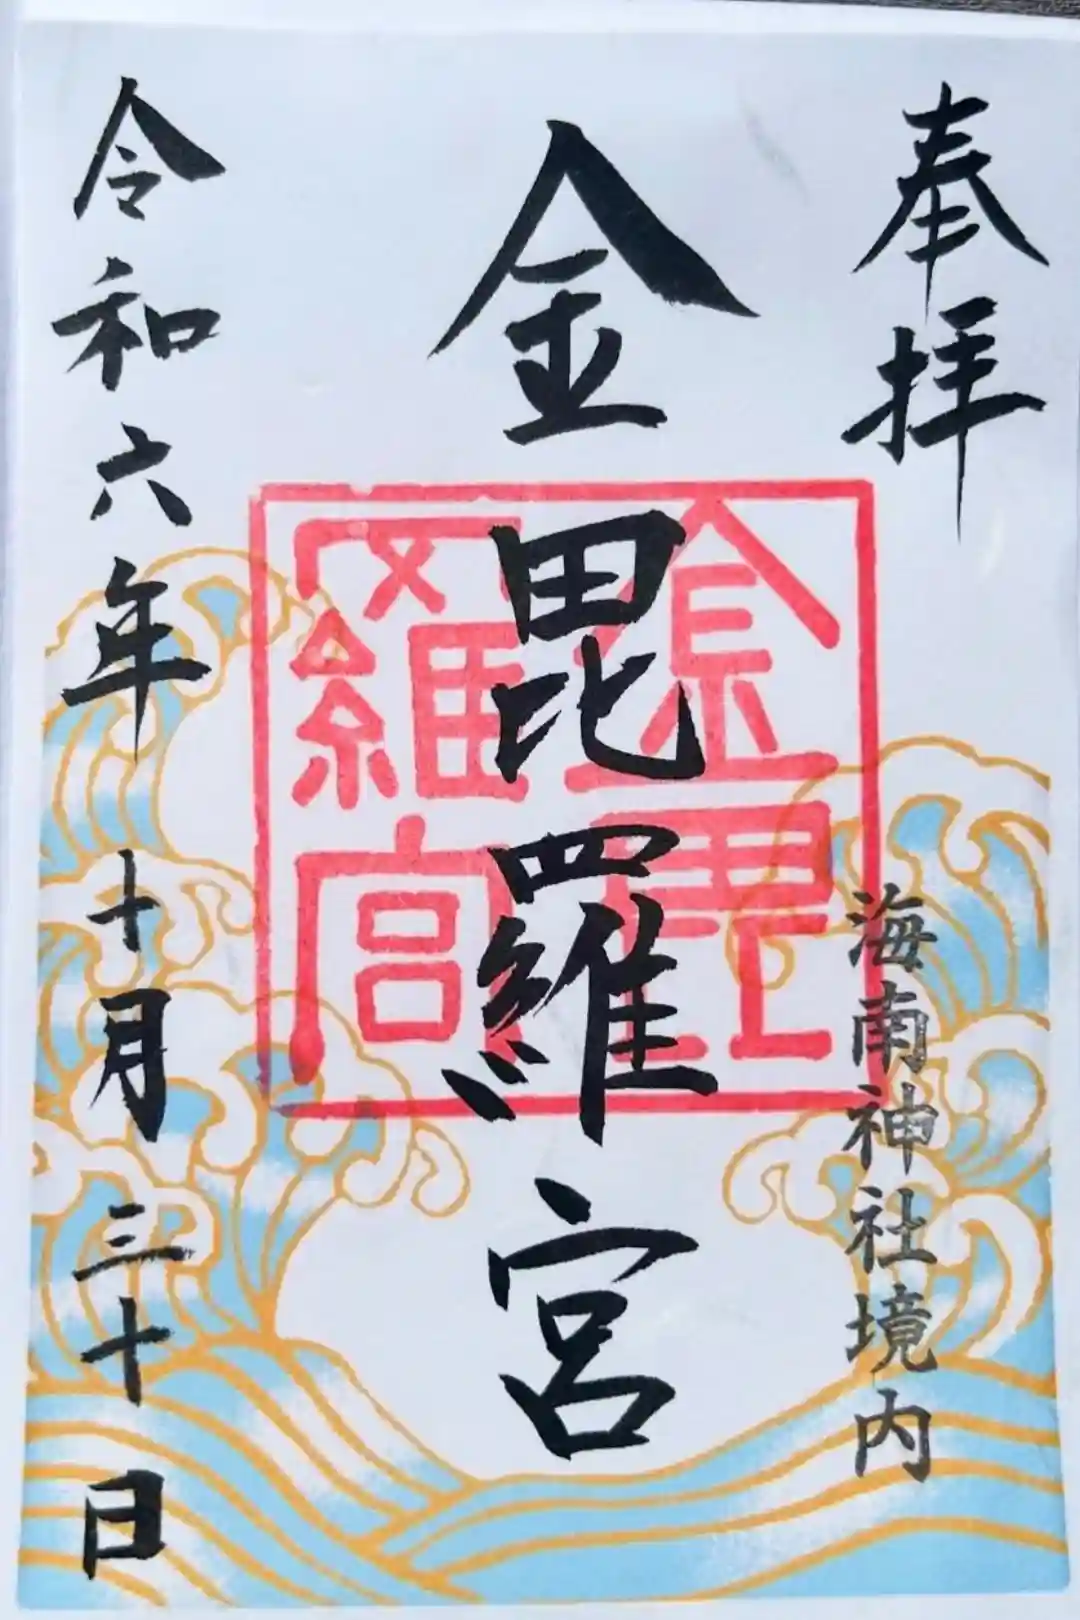 奉拝
海南神社境内
金毘羅宮
金毘羅宮
令和六年十月三十日